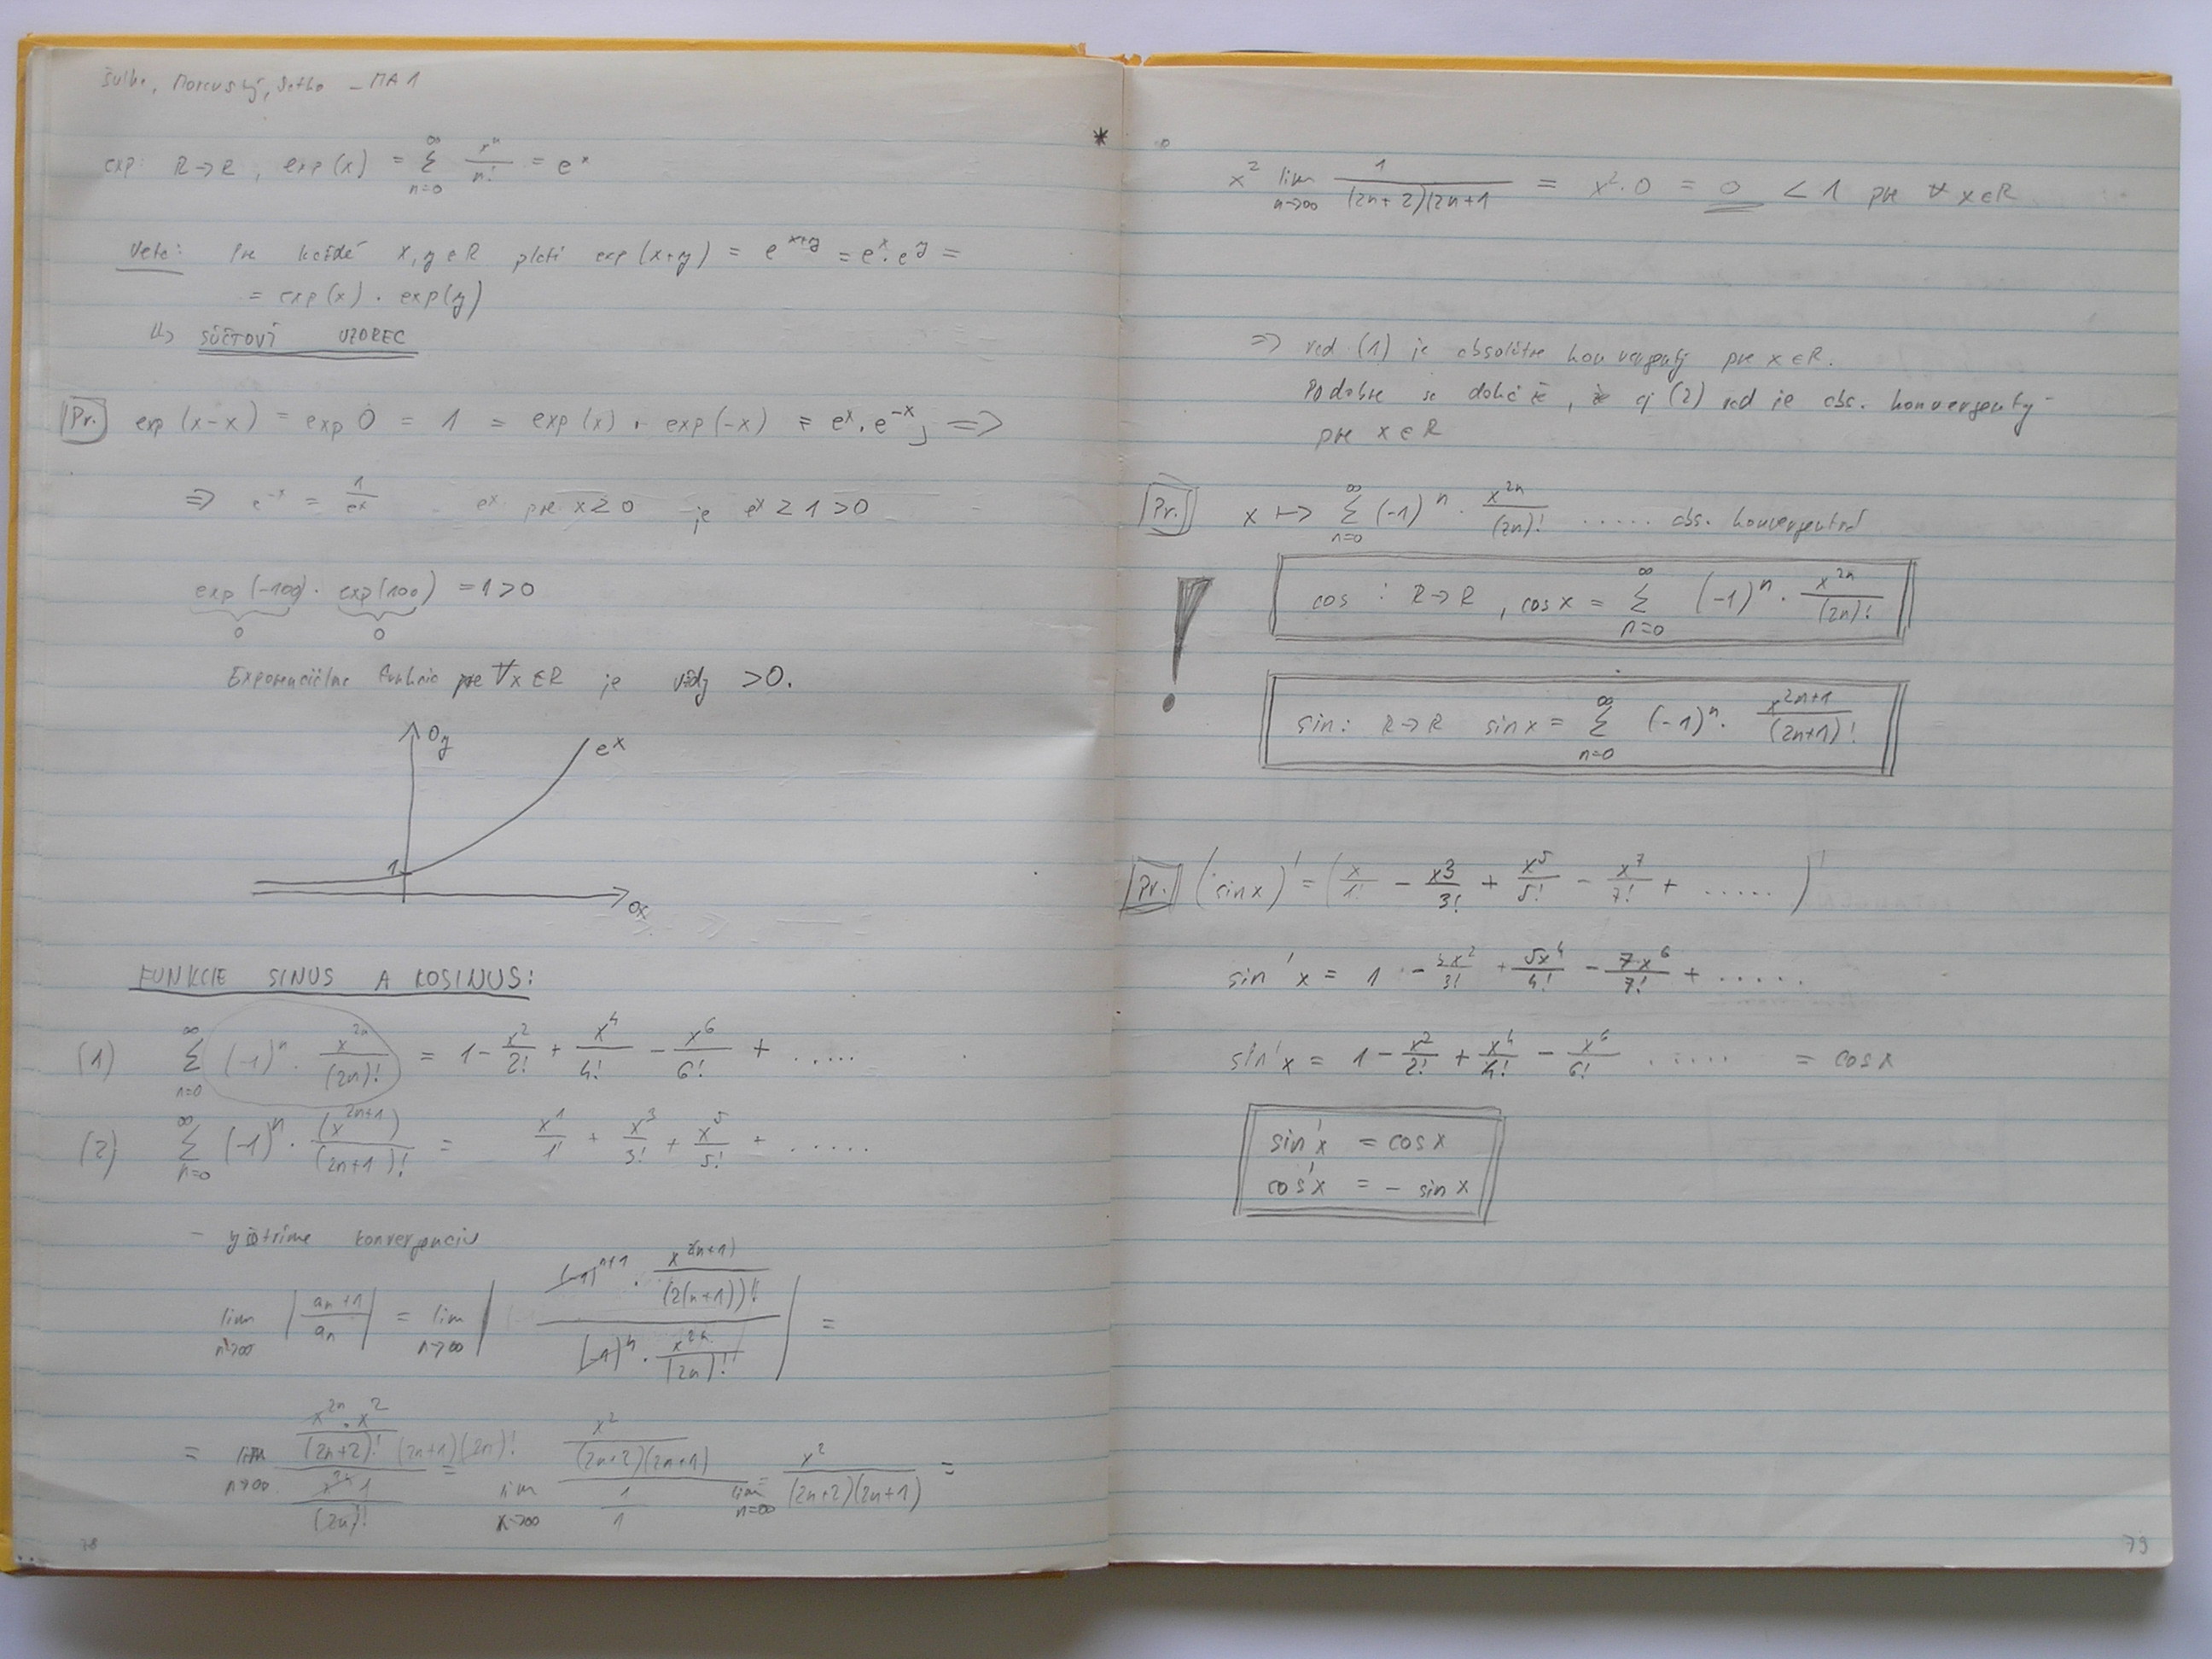 MA1
exp: R→R, exp(x) = ∑_{n=0}^{∞} x^n/n! = e^x
Veta: Pre každé x,y∈R platí exp(x+y) = e^{x+y} = e^x·e^y =
= exp(x) · exp(y)
↳ SÚČTOVÍ VZOREC
Pr. exp(x-x) = exp 0 = 1 = exp(x) · exp(-x) = e^x·e^{-x}; =>
=> e^{-x} = 1/e^x e^x pre x≥0 je e^x ≥ 1 > 0
exp(-100) · exp(100) = 1 > 0
0 0
Exponenciálna funkcia pre ∀x∈R je vždy >0.
0y
e^x
1
0x
FUNKCIE SINUS A KOSINUS:
(1) ∑_{n=0}^{∞} (-1)^n · x^{2n}/(2n)! = 1 - x^2/2! + x^4/4! - x^6/6! + .....
(2) ∑_{n=0}^{∞} (-1)^n · (x^{2n+1})/(2n+1)! = x^1/1! + x^3/3! + x^5/5! + .....
- konvergenciu
lim_{n→∞} |a_{n+1}/a_n| = lim_{n→∞} | ((-1)^{n+1} · x^{2(n+1)}/(2(n+1))!) / ((-1)^n · x^{2n}/(2n)!) | =
= lim_{n→∞} (x^{2n}·x^2/(2n+2)! (2n+1)(2n)!) / (x^{2n} 1/(2n)!) = lim_{x→∞} (x^2/(2n+2)(2n+1)) / (1/1) = lim_{n=∞} x^2/(2n+2)(2n+1) =
78
*
x^2 lim_{n→∞} 1/(2n+2)(2n+1 = x^2·0 = 0 < 1 pre ∀ x∈R
=> rad (1) je absolútne konvergentý pre x∈R.
Podobne sa dokáže, že aj (2) rad je abs. konvergentý
pre x∈R
Pr. x ↦ ∑_{n=0}^{∞} (-1)^n · x^{2n}/(2n)! ..... abs. konvergentná
!
cos : R→R, cos x = ∑_{n=0}^{∞} (-1)^n · x^{2n}/(2n)!
sin: R→R sin x = ∑_{n=0}^{∞} (-1)^n · x^{2n+1}/(2n+1)!
Pr. (sin x)' = (x/1! - x^3/3! + x^5/5! - x^7/7! + .....)'
sin'x = 1 - 3x^2/3! + 5x^4/4! - 7x^6/7! + .....
sin'x = 1 - x^2/2! + x^4/4! - x^6/6! ..... = cos x
sin'x = cos x
cos'x = - sin x
79